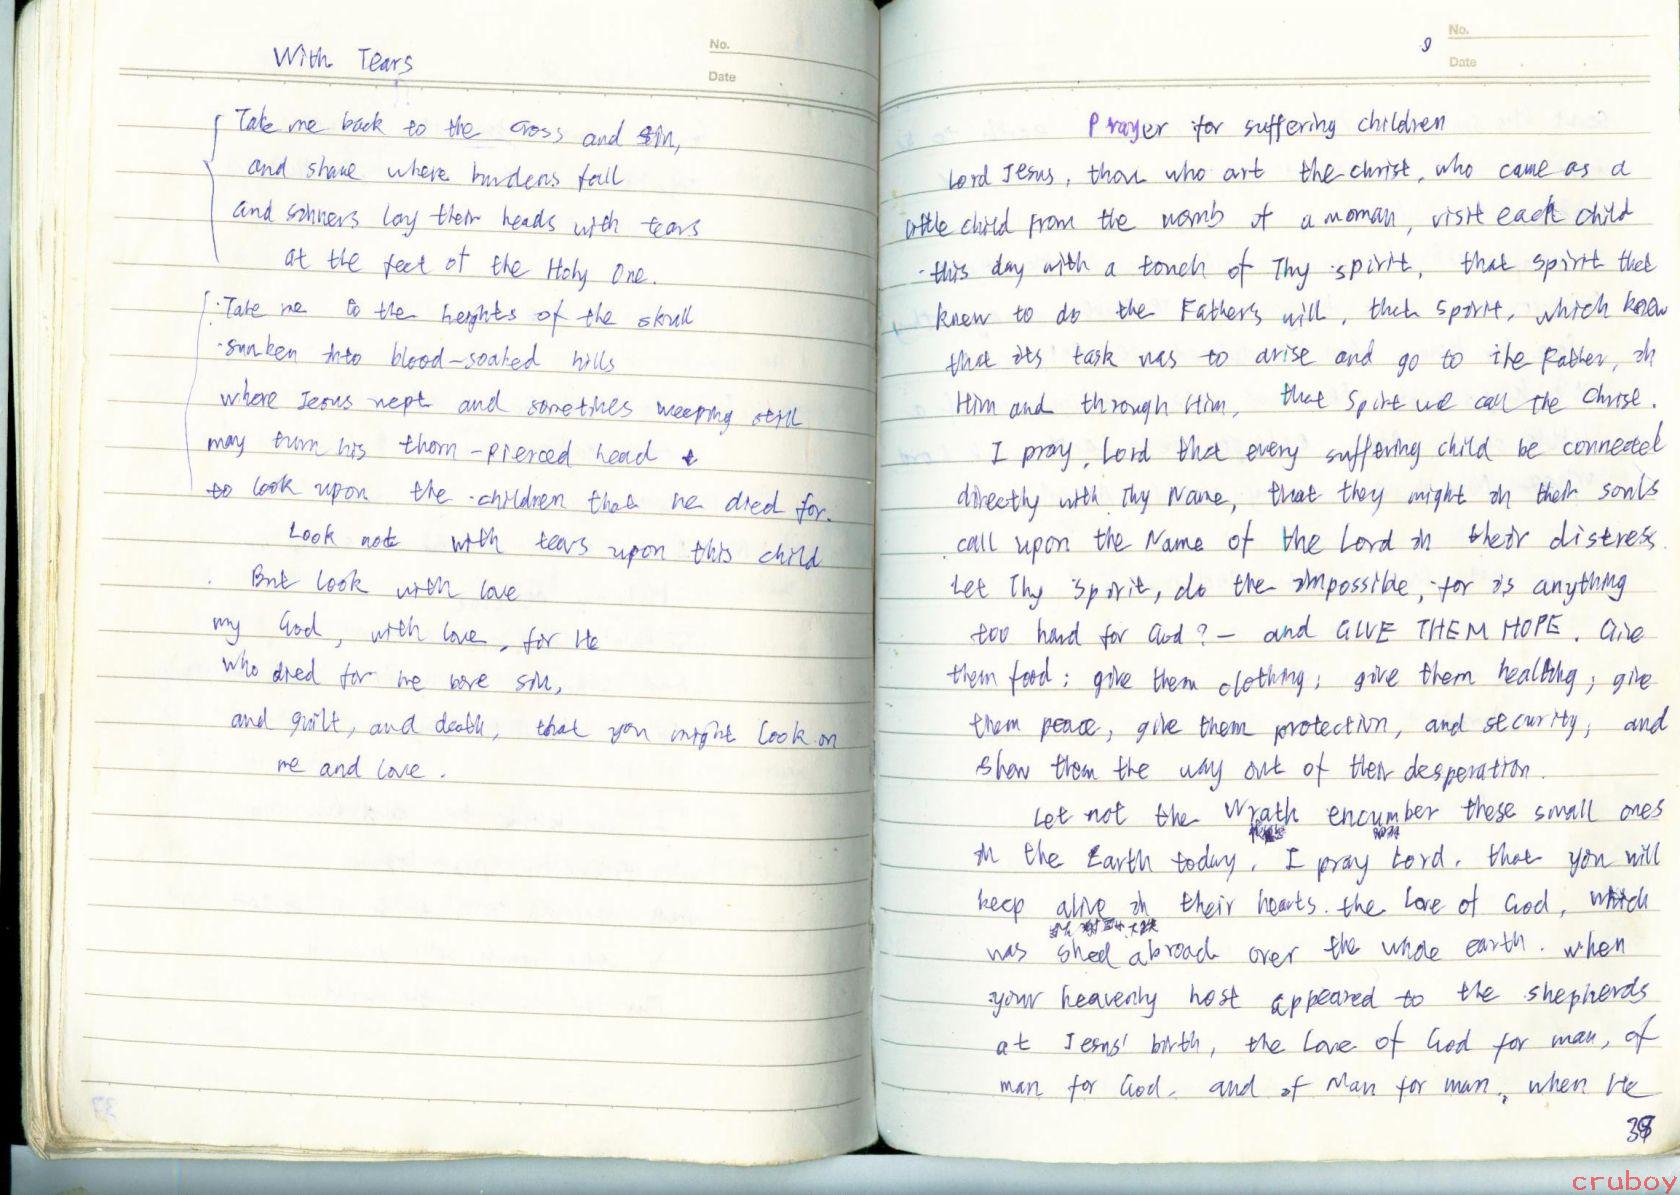 With Tears
No.
Date
Take me back to the cross and sin,
and shame where burdens fall
and sinners lay their heads with tears
at the feet of the Holy One.
Take me to the heights of the skull
sunken into blood-soaked hills
where Jesus wept and sometimes weeping still
may turn his thorn-pierced head
to look upon the children that he died for.
Look not with tears upon this child
But look with love
my God, with love, for He
who died for me bore sin,
and guilt, and death, that you might look on
me and love.
37
9
No.
Date
Prayer for suffering children
Lord Jesus, thou who art the christ, who came as a
little child from the womb of a woman, visit each child
this day with a touch of Thy spirit, that spirit that
knew to do the Father's will, that spirit, which knew
that its task was to arise and go to the Father, in
Him and through Him, that spirit we call the Christ.
I pray, Lord that every suffering child be connected
directly with Thy Name, that they might in their souls
call upon the Name of the Lord in their distress.
Let Thy spirit, do the impossible, for is anything
too hard for God? - and GIVE THEM HOPE. Give
them food; give them clothing; give them healing; give
them peace, give them protection, and security; and
show them the way out of their desperation.
Let not the Wrath encumber these small ones
in the Earth today. I pray Lord, that you will
keep alive in their hearts. the love of God, which
was shed abroad over the whole earth. when
your heavenly host appeared to the shepherds
at Jesus' birth, the love of God for man, of
man for God, and of Man for man, when He
38
cruboy